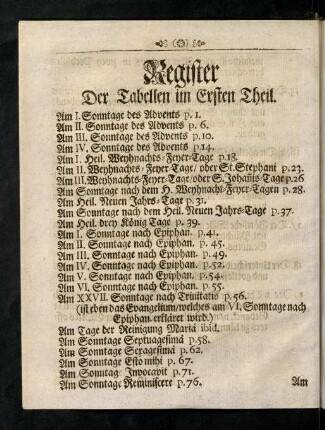 Register
Der Tabellen im Ersten Theil.
Am I. Sonntage des Advents p. 1.
Am II. Sonntage des Advents p. 6.
Am III. Sonntage des Advents p. 10.
Am IV. Sonntage des Advents p. 14.
Am I. Heil. Weyhnachts-Feyer-Tage p. 18.
Am II. Weyhnachts-Feyer Tage/ oder St. Stephani p. 23.
Am III. Weyhnachts-Feyer-Tage/ oder S. Johañis Tage p. 26.
Am Sonntage nach dem H. Weyhnacht-Feyer-Tagen p. 28.
Am Heil. Neuen Jahrs-Tage p. 31.
Am Sonntage nach dem Heil. Neuen Jahrs-Tage p. 37.
Am Heil. drey König Tage p. 39.
Am I. Sonntage nach Epiphan. p. 41.
Am II. Sonntage nach Epiphan. p. 45.
Am III. Sonntage nach Epiphan. p. 49.
Am IV. Sonntage nach Epiphan. p. 52.
Am V. Sonntage nach Epiphan. p. 54.
Am VI. Sonntage nach Epiphan. p. 55.
Am XXVII. Sonntage nach Trinitatis p. 56.
(ist eben das Evangelium/ welches am VI. Sonntage nach
Epiphan. erkläret wird.)
Am Tage der Reinigung Mariä ibid.
Am Sonntage Septuagesimä p. 58.
Am Sonntage Sexagesimä p. 62.
Am Sonntage Esto mihi p. 67.
Am Sonntage Invocavit p. 71.
Am Sonntage Reminiscere p. 76.
Am